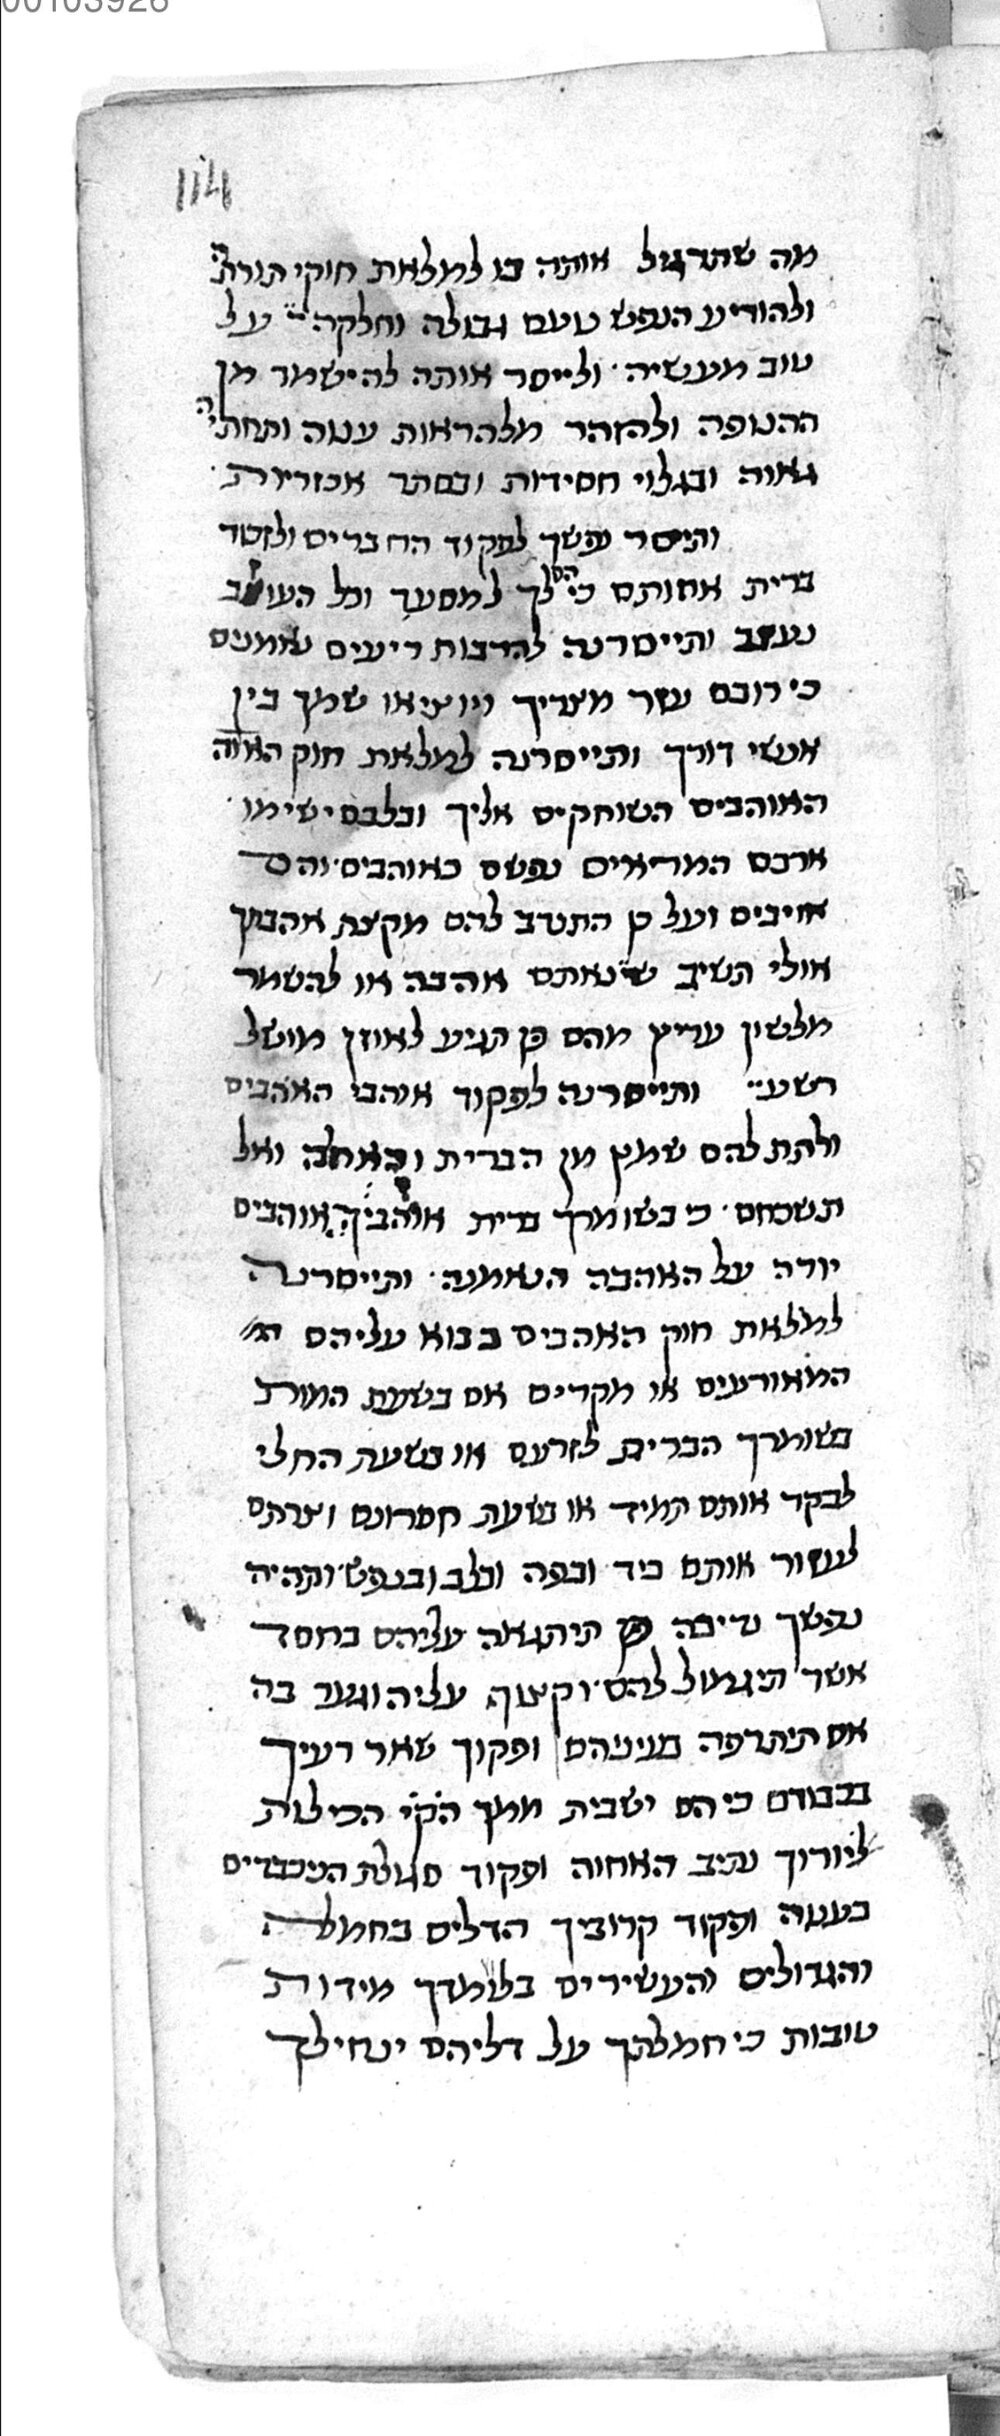 00103926
114
מה שתרגיל אותה בו למלאת חוקי תורתה
ולהודיע הנפש טעם גבולה וחלקה על
טוב מעשיה ולייסר אותה להישמר מן
החנופה ולהזהר מלהראות ענוה ותחתיה
גאוה ובגלוי חסידות ובסתר אכזריות
ותיסר נפשך לפקוד החברים ולזכור
ברית אחותם כי הם לך למסעד וכל העוזב
נעזב ותייסרנה להרבות ריעים נאמנים
כי רובם עשר מצריך ויוציאו שמך בין
אנשי דורך ותייסרנה למלאת חוק האוה
האוהבים השוחקים אליך ובלבם ישימו
ארבם המראים נפשם כאוהבים והם
אויבים ועל כן התנדב להם מקצת אהבתך
אולי תשיב שנאתם אהבה או להשמר
מלשון עריץ מהם פן תגיע לאוזן מושל
רשע ותייסרנה לפקוד אוהבי האהבים
ולתת להם שמץ מן הברית והאחוה ואל
תשכחם כי בשומרך ברית אוהביך אוהבים
יורה על האהבה הנאמנה ותייסרנה
למלאת חוק האהבים בבוא עליהם המ
המאורעים או מקרים אם בשעת המות
בשומרך הברית לזרעם או בשעת החלי
לבקר אותם תמיד או בשעת חסרונם וצרתם
לעזור אותם ביד ובפה ובלב ובנפש ותהיה
נפשך נדיבה פן תיתגאה עליהם בחסד
אשר תיגמול להם וקצוף עליה וגער בה
אם תיתרפה מענינהם ופקוד שאר רעיך
בכבודם כי הם ישבית ממך חקי הכילות
ליורוך נתיב האחוה ופקוד סגולת הנכבדים
בענוה ופקוד קרוביך הדלים בחמלה
והגדולים והעשירים בלומדך מידות
טובות כי חמלתך על דליהם ינחילך